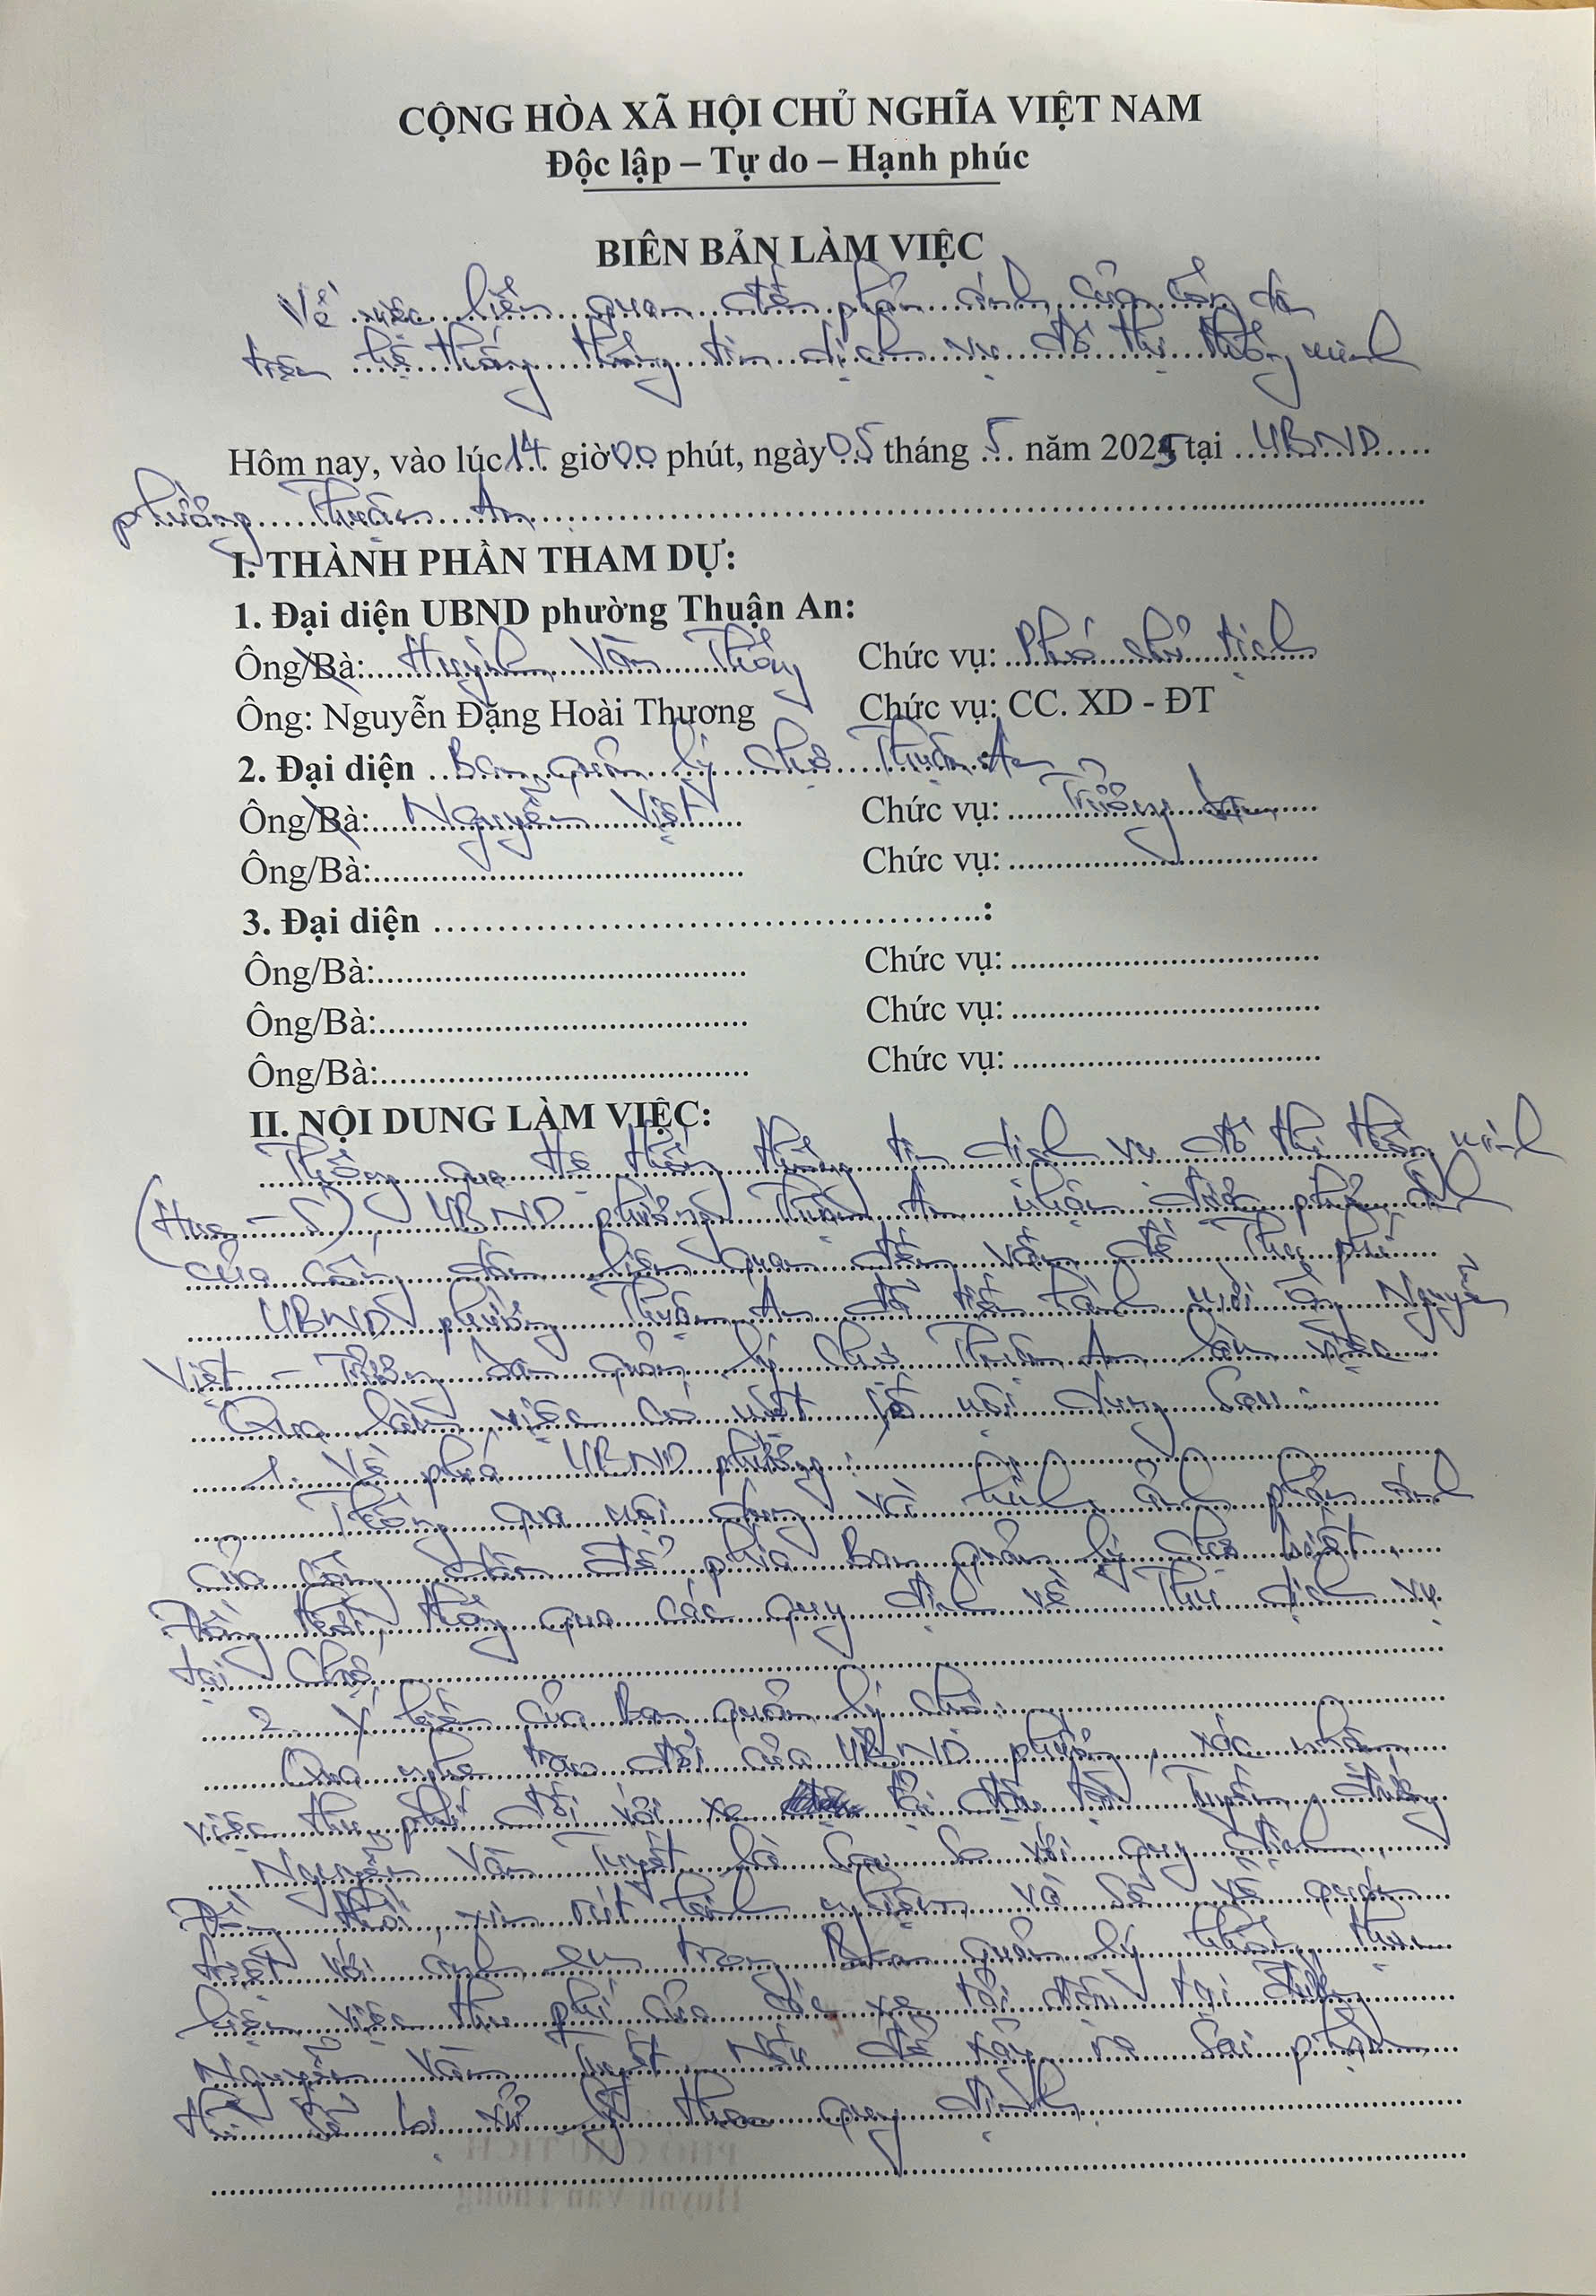 CỘNG HÒA XÃ HỘI CHỦ NGHĨA VIỆT NAM
Độc lập – Tự do – Hạnh phúc
BIÊN BẢN LÀM VIỆC
Về việc liên quan đến phản ánh của công dân
trên hệ thống thông tin dịch vụ đô thị thông minh
Hôm nay, vào lúc 14 giờ 00 phút, ngày 05 tháng 5 năm 2025 tại UBND
phường Thuận An
I. THÀNH PHẦN THAM DỰ:
1. Đại diện UBND phường Thuận An:
Ông/Bà: Huỳnh Văn Thông Chức vụ: Phó chủ tịch
Ông: Nguyễn Đặng Hoài Thương Chức vụ: CC. XD - ĐT
2. Đại diện Ban quản lý chợ Thuận An
Ông/Bà: Nguyễn Việt Chức vụ: Trưởng ban
Ông/Bà: Chức vụ:
3. Đại diện :
Ông/Bà: Chức vụ:
Ông/Bà: Chức vụ:
Ông/Bà: Chức vụ:
II. NỘI DUNG LÀM VIỆC:
Thông qua hệ thống thông tin dịch vụ đô thị thông minh
(Hue - S), UBND phường Thuận An nhận được phản ánh
của công dân liên quan đến vấn đề Thu phí
UBND phường Thuận An đã tiến hành mời ông Nguyễn
Việt - Trưởng ban quản lý chợ Thuận An làm việc
Qua làm việc có một số nội dung sau:
1. Về phía UBND phường:
Thông qua nội dung và hình ảnh phản ánh
của công dân để phía Ban quản lý chợ biết.
Đồng thời, thông qua các quy định về Thu dịch vụ
tại chợ
2. Ý kiến của Ban quản lý chợ:
Qua nghe trao đổi của UBND phường, xác nhận
việc thu phí đối với xe tải đậu tại Tuyến đường
Nguyễn Văn Tuyết là sai so với quy định.
Đồng thời, xin rút kinh nghiệm và sẽ về quán
triệt với anh em trong Ban quản lý không thực
hiện việc thu phí của các xe tải đậu tại đường
Nguyễn Văn Tuyết. Nếu để xảy ra sai phạm
thì sẽ bị xử lý theo quy định.